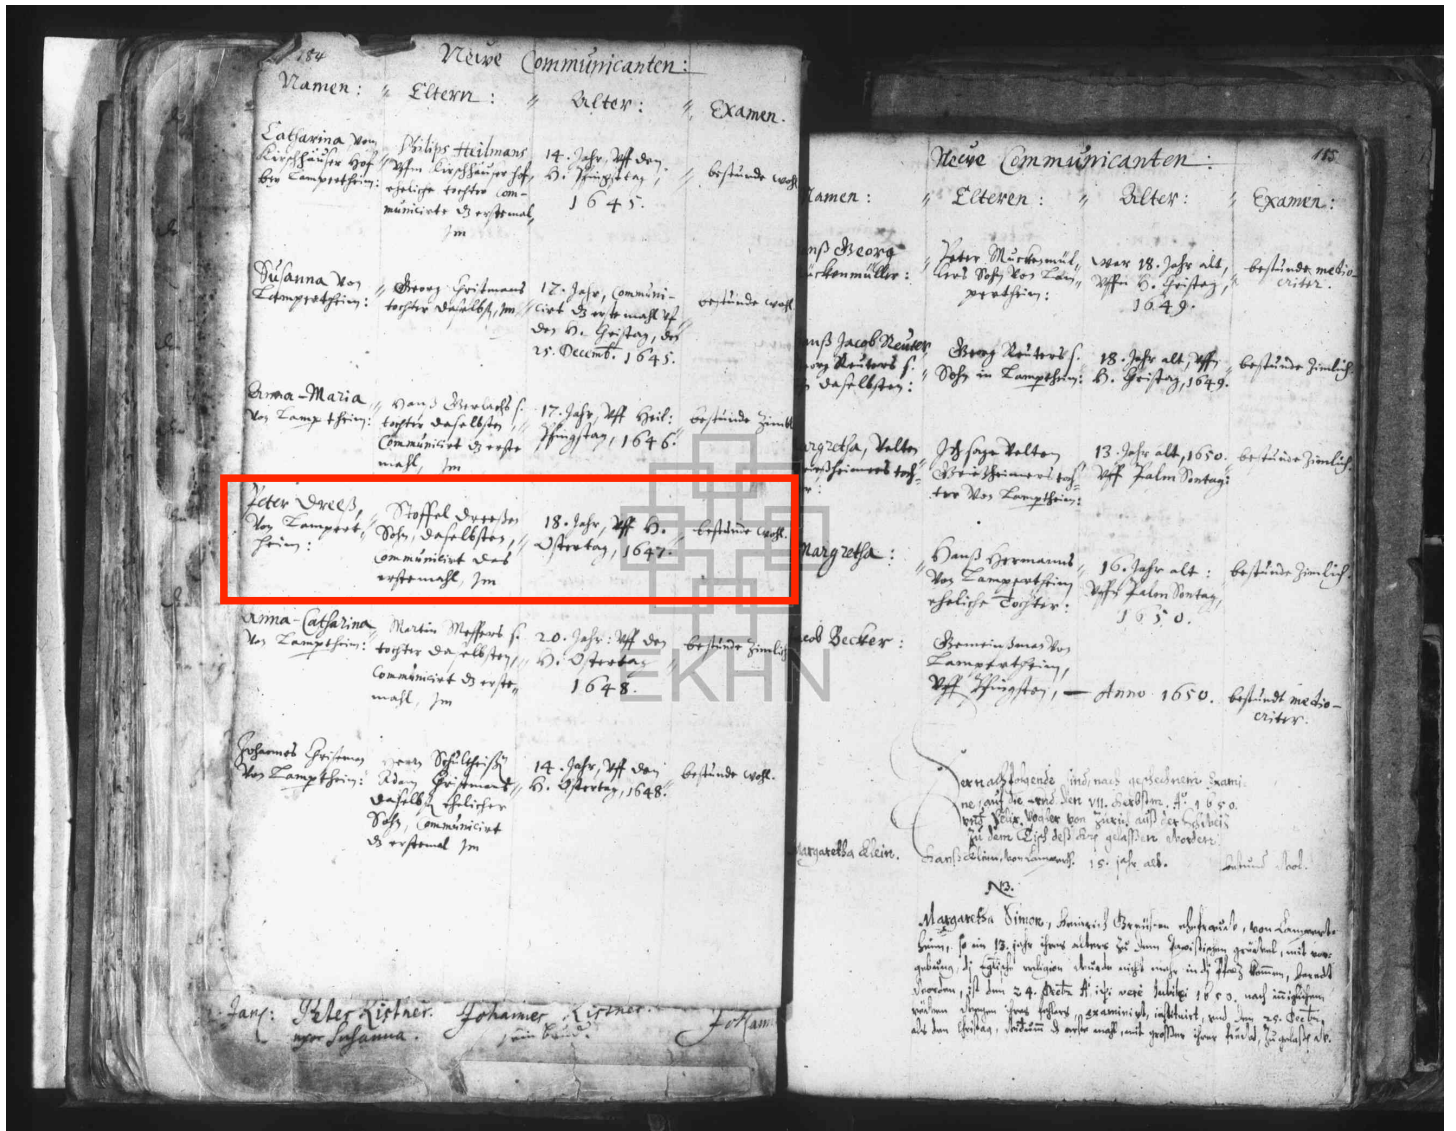 184
Newe Communicanten:
Namen: " Eltern: " Alter: " Examen.
Catharina von
Kirschhäuser Hof
bey Lampertheim:
Philips Heilmans
Vffm Kirschhäuser hof,
eheliche tochter com-
municirte dz erstemal,
Im
14. Jahr, Vff den
H. Pfingstag,
1645.
bestunde wohl
Susanna von
Lampertheim:
Georg
tochter daselbst, Im
17. Jahr, Communi-
cirt dz erste mahl vf
den H. Christag, den
25. Decemb. 1645.
bestunde wohl.
Anna-Maria
von Lamptheim:
Hans Gerlachs s.
tochter daselbsten,
Communicirt dz erste
mahl, Im
17. Jahr, Vff Heil:
Pfingstag, 1646.
bestunde Ziml
Peter Dreeß,
von Lampert-
heim:
Stoffel Dreeßen
Sohn, daselbsten,
Communicirt das
erstemahl, Im
18. Jahr, Vff H.
Ostertag, 1647.
bestunde wohl.
Anna-Catharina
von Lamptheim:
Martin Meffers s.
tochter daselbsten,
Communicirt dz erste-
mahl, Im
20. Jahr: Vff den
H. Ostertag
1648.
bestunde Zimlich
Johannes
von Lamptheim:
Herrn Schultheißen
Adam
daselbst ehelicher
Sohn, Communicirt
dz erstemal Im
14. Jahr, Vff den
H. Ostertag, 1648.
bestunde wohl.
Peter Kistner. Johannes Kistner.
uxor Susanna.
Johann
185
Newe Communicanten:
Namen: " Elteren: " Alter: " Examen:
anß Georg
uckenmüller:
Peter Muckenmül-
lers Sohn von Lam-
pertheim:
war 18. Jahr alt,
Vffn H. Christag,
1649.
bestunde medio-
criter.
anß Jacob Reuter
eorg Reuters s.
daselbsten:
Georg Reuters s.
Sohn in Lamptheim:
18. Jahr alt, Vffn
H. Christag, 1649.
bestunde Zimlich
argretha, Velten
toch-
Ich sage Velten
toch-
ter von Lamptheim:
13. Jahr alt, 1650.
Vff Palm Sontag:
bestunde Zimlich.
Margretha:
Hanß Hermanns
von Lampertheim
eheliche Tochter:
16. Jahr alt:
Vffn Palm Sontag,
1650.
bestunde Zimlich.
acob Becker:
Gemeinsman von
Lampertheim,
Vff Pfingsten, — Anno 1650.
bestundt medio-
criter.
ernachfolgende sind nach geschehnem Exami-
ne, auf die ernd. den VII. Herbstm. A° 1650.
Felix Vogler von Zürich auß der Schweiz
zu dem Tisch deß Herren gelaßen worden.
Margaretha Klein.
Hanß Klein, von Lampert. 15. jahr alt.
bestund wol.
NB.
Margaretha Simon, Heinrich
heim, so im 13. jahr ihres alters zu dem
religion
worden, ist den 24. Decbr. 1650. nach
examinirt, und den 25. Decbr.
als den Christag,
EKHN